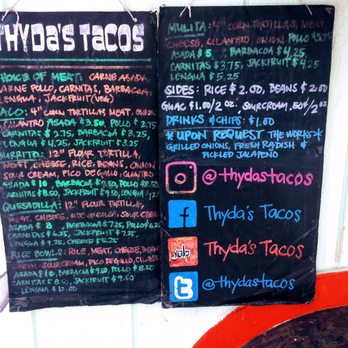 Thyda's Tacos
House of Meat: Carne Asada,
Carne Pollo, Carnitas, Barbacoa,
Lengua, Jackfruit (Veg)
Taco: 4" Corn Tortillas, Meat, Onion,
Cilantro Asada $3.50 Pollo $2.75
Carnitas $2.75, Barbacoa $3.25
Lengua $4.25 Jackfruit $3.25
Burrito: 12" Flour Tortilla,
Meat, Cheese, Rice, Beans, Onions,
Sour Cream, Pico de Gallo, Cilantro
Asada $10, Barbacoa $9.50, Pollo $8.50
Carnitas $8.50, Jackfruit $9.50, Lengua
Quesadilla: 12" Flour Tortilla,
Meat, Cheese, Sour Cream
Asada $8, Barbacoa $7.25, Pollo
Carnitas $6.25, Jackfruit $7.25,
Lengua $9.25,
Rice Bowls: Rice, Meat, Cheese, Beans
Onion, Sour Cream, Pico de Gallo, Cilantro
Asada $10 Barbacoa $9.50, Pollo $8.50
Carnitas $8.50, Jackfruit $9.50
Lengua $12.00
Mulita: 4" Corn Tortillas, Meat,
Cheese, Cilantro, Onion Pollo $3.75
Asada $5 Barbacoa $4.25
Carnitas $3.75, Jackfruit $4.25
Lengua $5.25
Sides: Rice $2.00, Beans $2.00
Guac $1.00/2 oz. Sour Cream .50¢/2 oz
Drinks & Chips: $1.00
*Upon Request The Works*
Grilled Onions, Fresh Radish &
Pickled Jalapeno
@thydastacos
f Thyda's Tacos
yelp Thyda's Tacos
@thydastacos